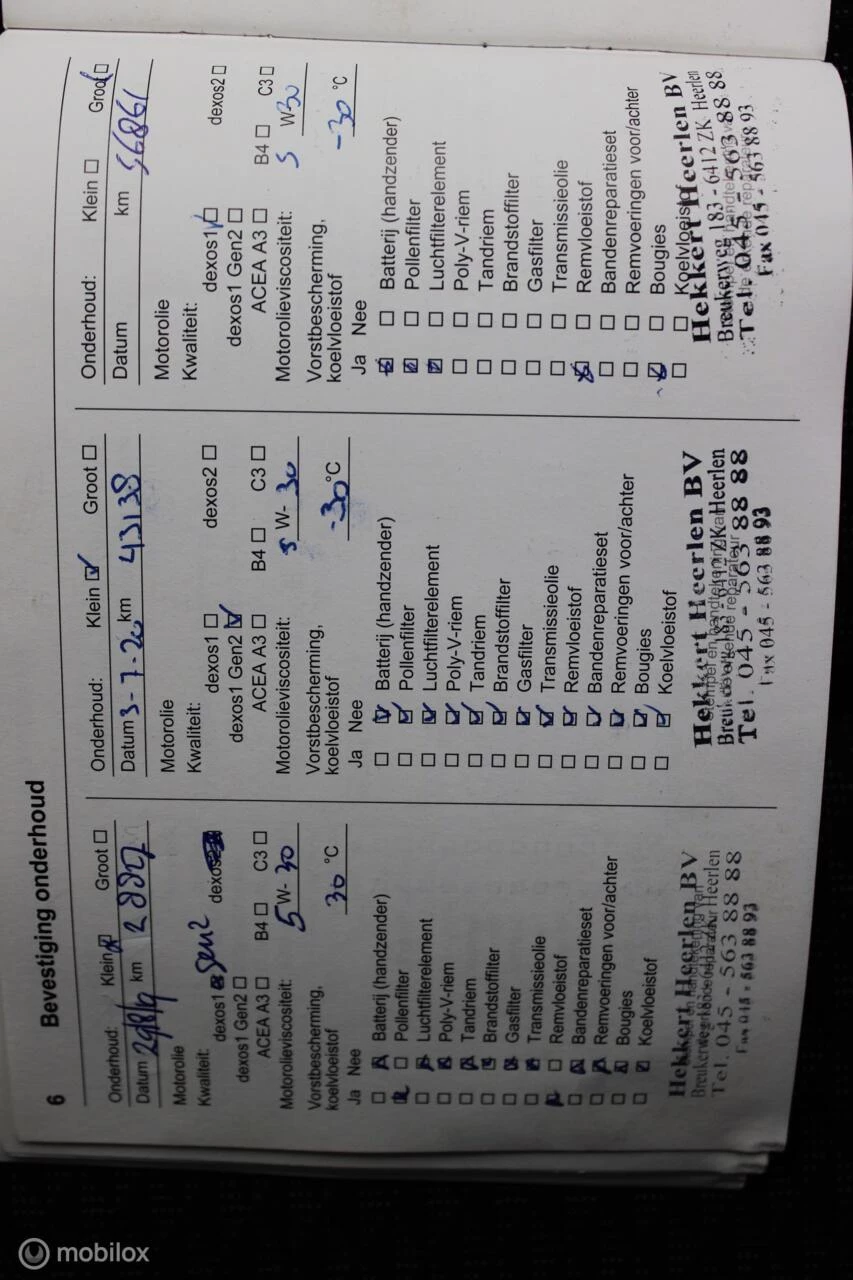 6 Bevestiging onderhoud
Onderhoud: Klein Groot
Datum km
Motorolie
Kwaliteit: dexos1 Gen2
dexos1 Gen2
ACEA A3 B4 C3
Motorolieviscositeit: 5 W- 30
Vorstbescherming,
koelvloeistof 30 °C
Ja Nee
Batterij (handzender)
Pollenfilter
Luchtfilterelement
Poly-V-riem
Tandriem
Brandstoffilter
Gasfilter
Transmissieolie
Remvloeistof
Bandenreparatieset
Remvoeringen voor/achter
Bougies
Koelvloeistof
Hekkert Heerlen BV
Breukerweg 183 Heerlen
Tel. 045 - 563 88 88
Fax 045 - 563 88 93
Onderhoud: Klein Groot
Datum 3-7-20 km 43138
Motorolie
Kwaliteit: dexos1 dexos2
dexos1 Gen2
ACEA A3 B4 C3
Motorolieviscositeit: 5 W- 30
Vorstbescherming,
koelvloeistof -30 °C
Ja Nee
Batterij (handzender)
Pollenfilter
Luchtfilterelement
Poly-V-riem
Tandriem
Brandstoffilter
Gasfilter
Transmissieolie
Remvloeistof
Bandenreparatieset
Remvoeringen voor/achter
Bougies
Koelvloeistof
Hekkert Heerlen BV
Heerlen
Tel. 045 - 563 88 88
Fax 045 - 563 88 93
Onderhoud: Klein Groot
Datum km 56861
Motorolie
Kwaliteit: dexos1 dexos2
dexos1 Gen2
ACEA A3 B4 C3
Motorolieviscositeit: 5 W 30
Vorstbescherming,
koelvloeistof -30 °C
Ja Nee
Batterij (handzender)
Pollenfilter
Luchtfilterelement
Poly-V-riem
Tandriem
Brandstoffilter
Gasfilter
Transmissieolie
Remvloeistof
Bandenreparatieset
Remvoeringen voor/achter
Bougies
Koelvloeistof
Hekkert Heerlen BV
Breukerweg 183 - 6412 ZK Heerlen
Tel. 045 - 563 88 88
Fax 045 - 563 88 93
mobilox